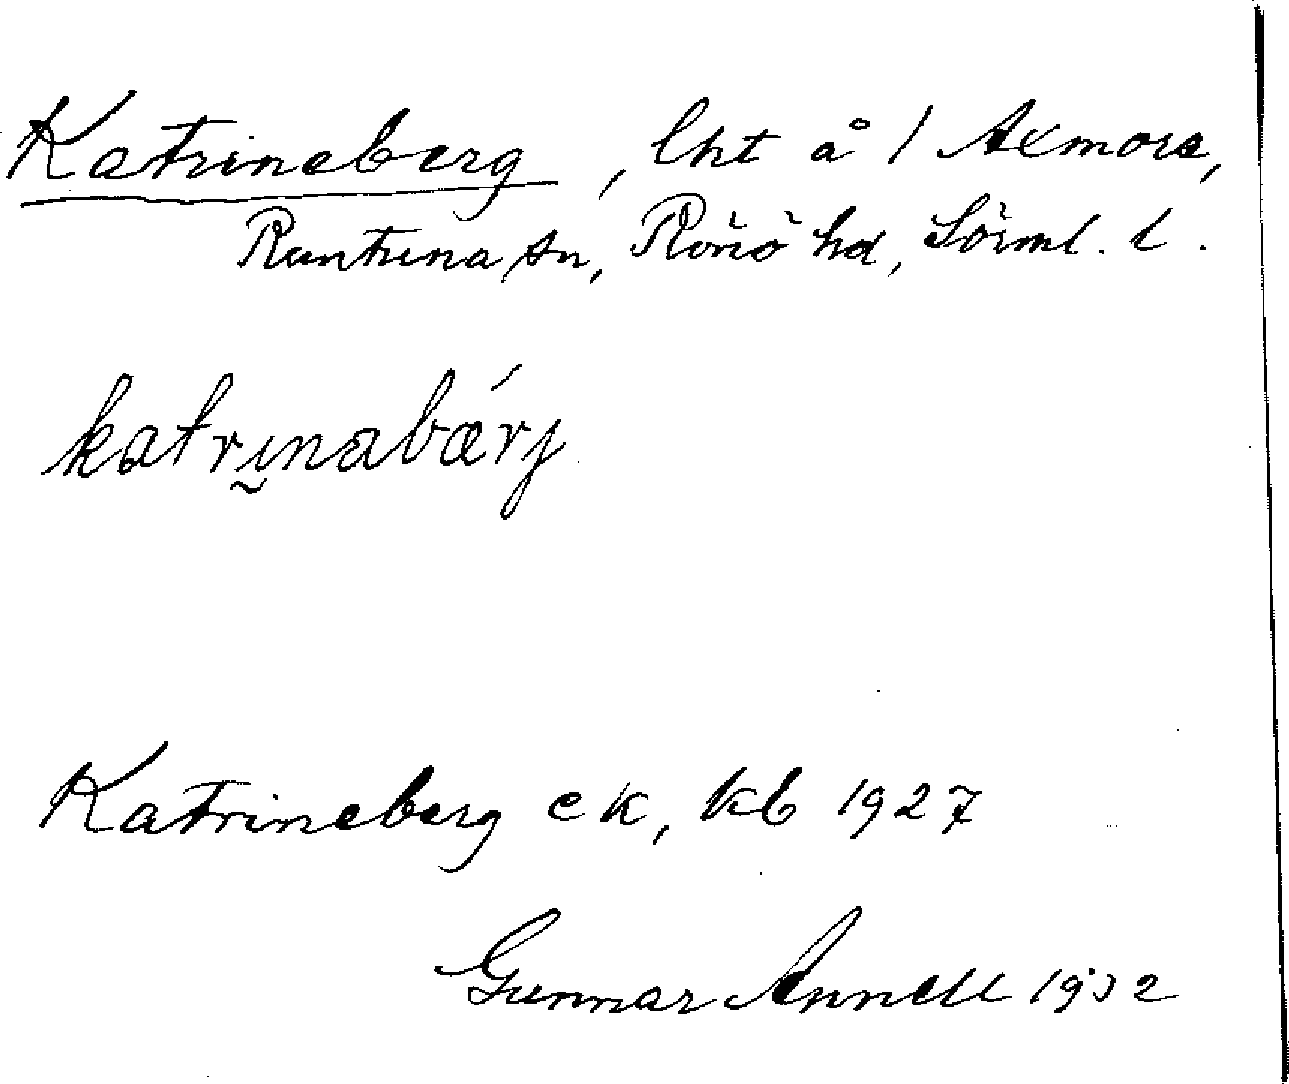 Katrineberg, lht å / Axmora,
Runtuna sn, Rönö hd, Sörml. l.
katrinabǽrj
Katrineberg ek, kb 1927
Gunnar Annell 1932